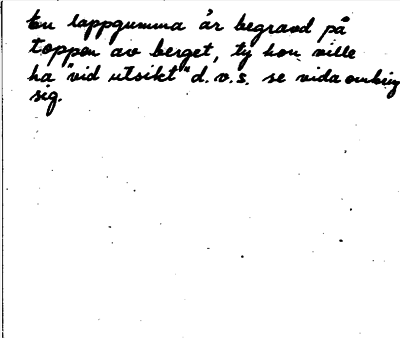 En lappgumma är begravd på
toppen av berget, ty hon ville
ha "vid utsikt" d.v.s. se vida omkring
sig.